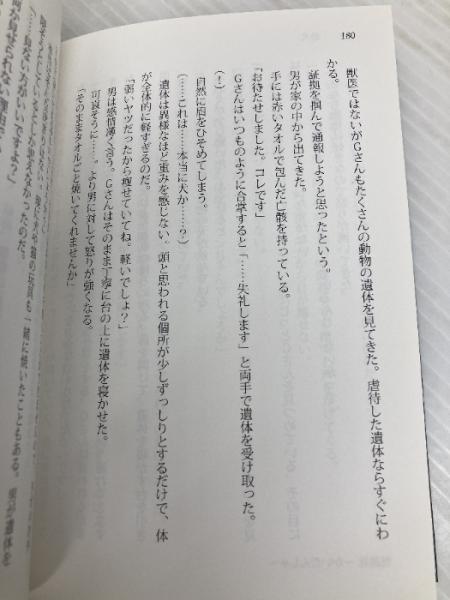 180
獣医ではないがGさんもたくさんの動物の遺体を見てきた。虐待した遺体ならすぐにわ
かる。
証拠を掴んで通報しようと思ったという。
男が家の中から出てきた。
手には赤いタオルで包んだ亡骸を持っている。
「お待たせしました。コレです」
Gさんはいつものように合掌すると「……失礼します」と両手で遺体を受け取った。
(!)
自然に眉をひそめてしまう。
(……これは……本当に犬か……?)
遺体は異様なほど重みを感じない。頭と思われる個所が少しずっしりとするだけで、体
が全体的に軽すぎるのだ。
「弱いヤツだったから痩せていてね、軽いでしょ?」
男は感情薄く言う。Gさんはそのまま丁寧に台の上に遺体を寝かせた。
可哀そうに……。より男に対して怒りが強くなる。
「そのままタオルごと焼いてくれませんか」
犬や猫の玩具も一緒に焼いたこともある。男が遺体を
しているとしか思えなかったのだ。
「……見ない方がいいですよ」